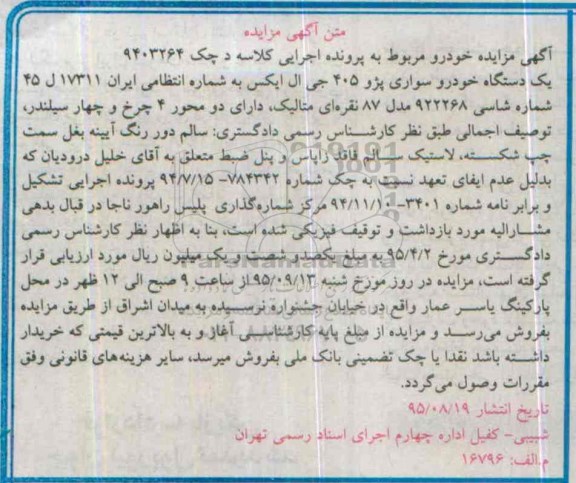 متن آگهی مزایده
آگهی مزایده خودرو مربوط به پرونده اجرایی کلاسه د چک ۹۴۰۳۲۶۴
یک دستگاه خودرو سواری پژو ۴۰۵ جی ال ایکس به شماره انتظامی ایران ۱۷۳۱۱ ل ۴۵
شماره شاسی ۹۲۲۲۶۸ مدل ۸۷ نقره‌ای متالیک، دارای دو محور ۴ چرخ و چهار سیلندر،
توصیف اجمالی طبق نظر کارشناس رسمی دادگستری: سالم دور رنگ آیینه بغل سمت
چپ شکسته، لاستیک سالم فاقد زاپاس و پنل ضبط متعلق به آقای خلیل درودیان که
بدلیل عدم ایفای تعهد نسبت به چک شماره ۷۸۴۳۴۲-۹۴/۷/۱۵ پرونده اجرایی تشکیل
و برابر نامه شماره ۳۴۰۱-۹۴/۱۱/۱۰ مرکز شماره‌گذاری پلیس راهور ناجا در قبال بدهی
مشارالیه مورد بازداشت و توقیف فیزیکی شده است، بنا به اظهار نظر کارشناس رسمی
دادگستری مورخ ۹۵/۴/۲ به مبلغ یکصد و شصت و یک میلیون ریال مورد ارزیابی قرار
گرفته است، مزایده در روز مورخ شنبه ۹۵/۰۹/۱۳ از ساعت ۹ صبح الی ۱۲ ظهر در محل
پارکینگ یاسر عمار واقع در خیابان جشنواره نرسیده به میدان اشراق از طریق مزایده
بفروش می‌رسد و مزایده از مبلغ پایه کارشناسی آغاز و به بالاترین قیمتی که خریدار
داشته باشد نقدا یا چک تضمینی بانک ملی بفروش میرسد، سایر هزینه‌های قانونی وفق
مقررات وصول می‌گردد.
تاریخ انتشار ۹۵/۰۸/۱۹
شبیبی- کفیل اداره چهارم اجرای اسناد رسمی تهران
م.الف: ۱۶۷۹۶